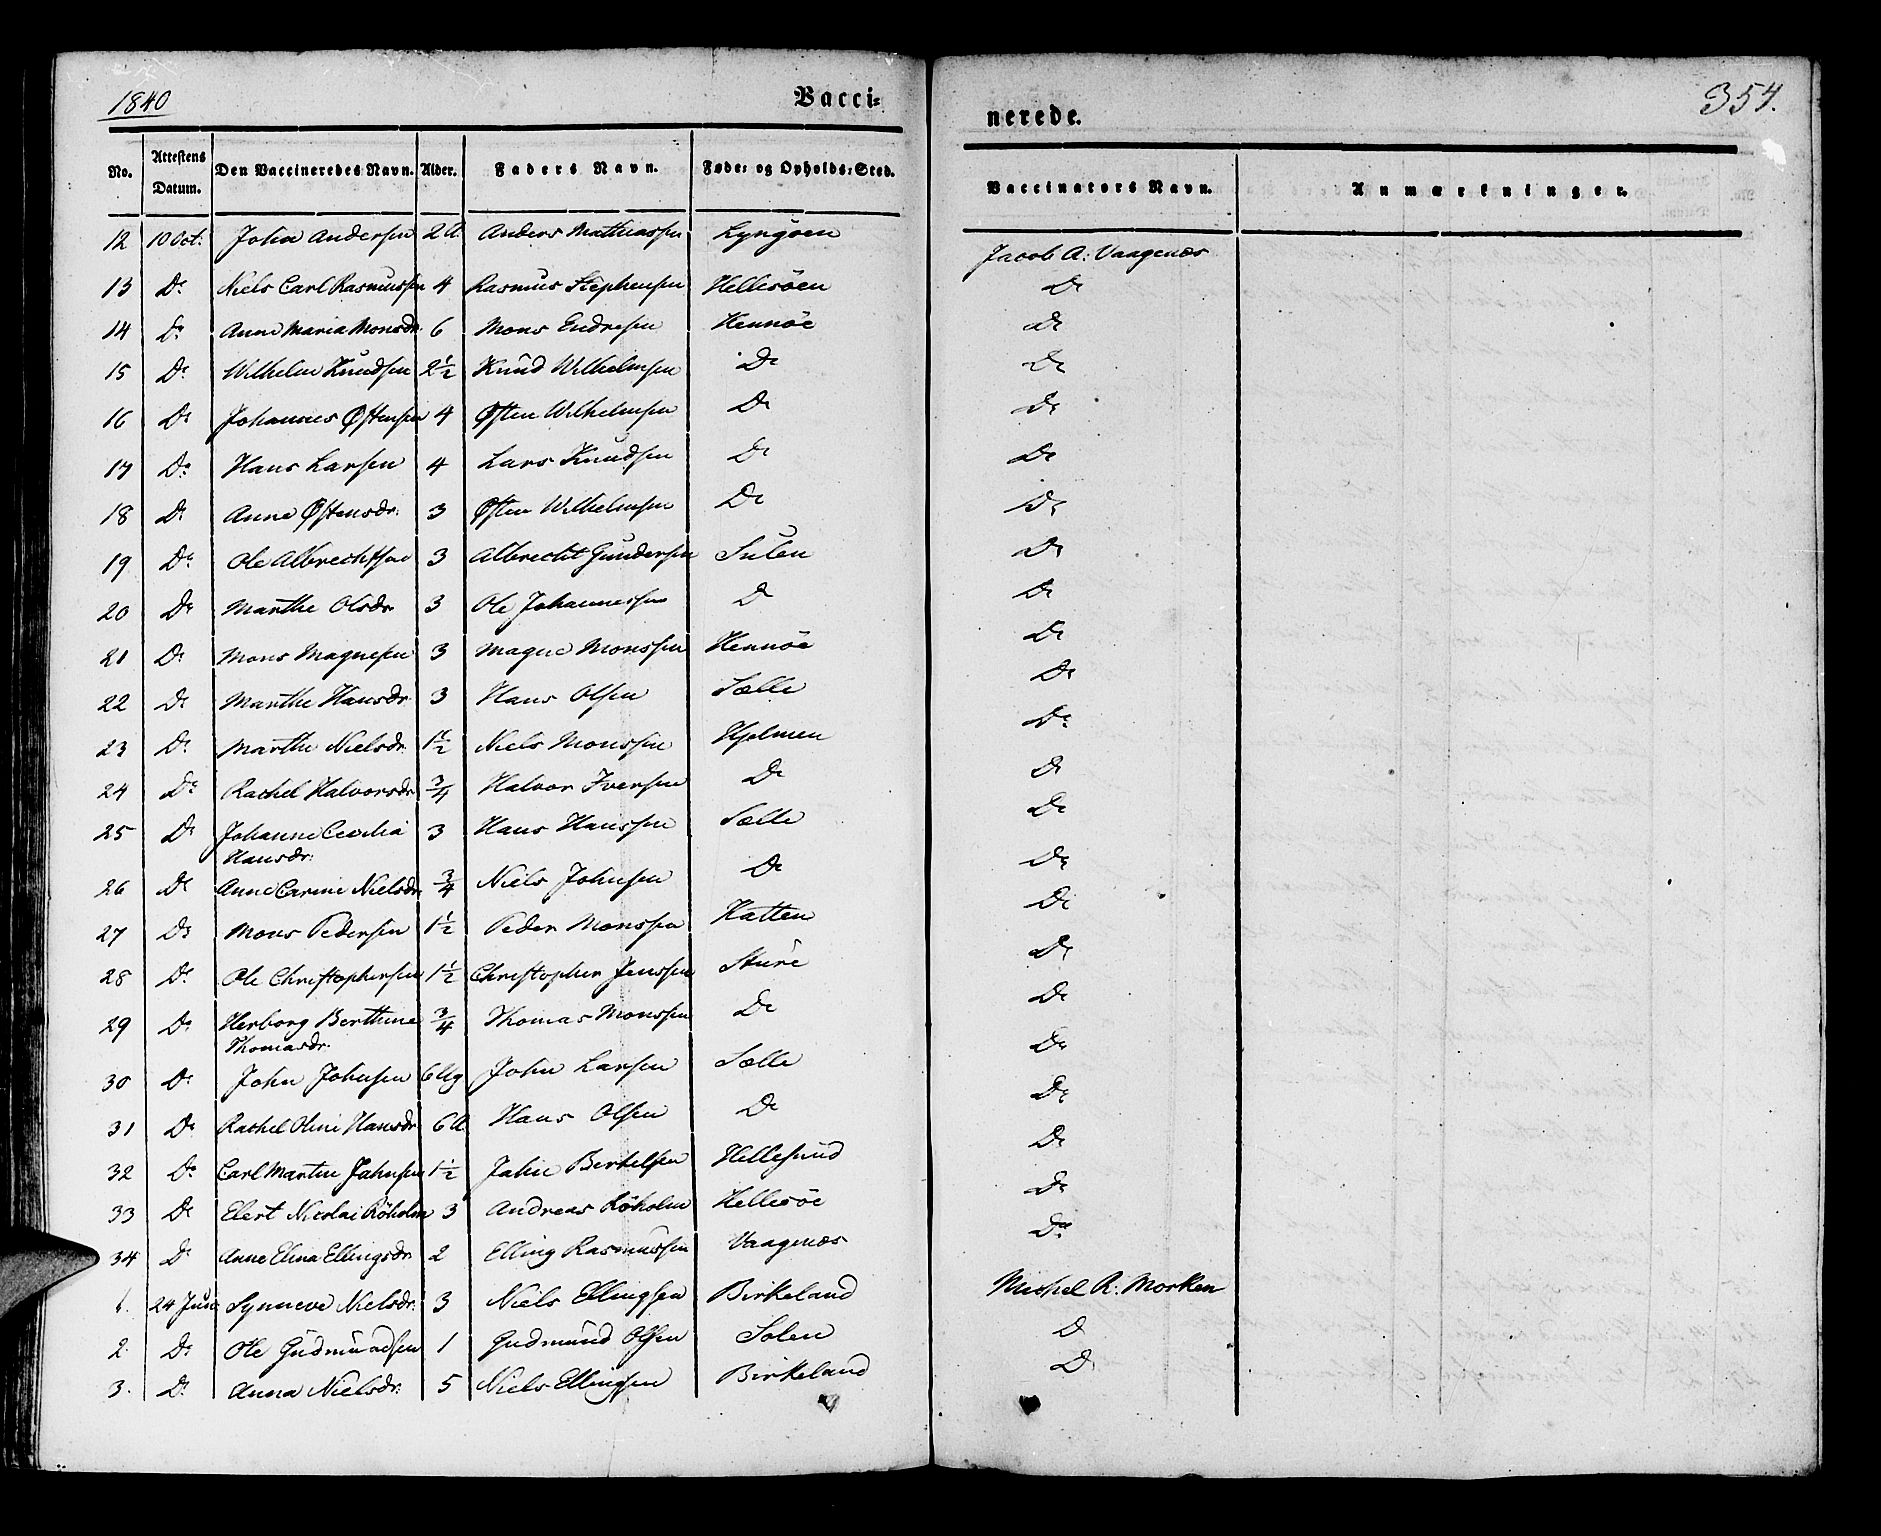 1840 Vacci= nerede. 354.
No. Attestens Datum. Den Vaccineredes Navn. Alder. Faders Navn. Føde= og Opholds=Sted. Vaccinators Navn. Anmærkninger.
12 10 Oct: John Andersen 2 A Anders Mathiassen Lyngöen Jacob A: Vaagenæs
13 Do Niels Carl Rasmussen 4 Rasmus Stephensen Hellesöen Do
14 Do Anne Maria Monsdr. 6 Mons Endresen Hennöe Do
15 Do Wilhelm Knudsen 2½ Knud Wilhelmsen Do Do
16 Do Johannes Østensen 4 Østen Wilhelmsen Do Do
17 Do Hans Larsen 4 Lars Knudsen Do Do
18 Do Anne Østensdr: 3 Østen Wilhelmsen Do Do
19 Do Ole Albrechtsen 3 Albrecht Gundersen Sulen Do
20 Do Marthe Olsdr. 3 Ole Johannessen Do Do
21 Do Mons Magnesen 3 Magne Monssen Hennöe Do
22 Do Marthe Hansdr. 3 Hans Olsen Sælle Do
23 Do Marthe Nielsdr. 1½ Niels Monssen Hjelmen Do
24 Do Rachel Halvorsdr. ¾ Halvor Iversen Do Do
25 Do Johanne Cecilia 3 Hans Hanssen Sælle Do
Hansdr:
26 Do Anne Carine Nielsdr. ¾ Niels Johnsen Do Do
27 Do Mons Pedersen 1½ Peder Monssen Hatten Do
28 Do Ole Christophersen 1½ Christopher Jenssen Sture Do
29 Do Herborg Berthine ¾ Thomas Monssen Do Do
Thomasdr.
30 Do John Johnsen 6 Ug John Larsen Sælle Do
31 Do Rachel Oline Hansdr. 6 A. Hans Olsen Do Do
32 Do Carl Martin Johnsen 1½ John Bertelsen Hellesund Do
33 Do Elert Nicolai Röholm 3 Andreas Röholm Hellesöe Do
34 Do Anne Elina Ellingsdr. 2 Elling Rasmussen Vaagenæs Do
1. 24 Juni Synneva Nielsdr. 3 Niels Ellingsen Birkeland Michel R: Morken
2. Do Ole Gudmundsen 1 Gudmund Olsen Solen D
3. Do Anna Nielsdr: 5 Niels Ellingsen Birkeland D